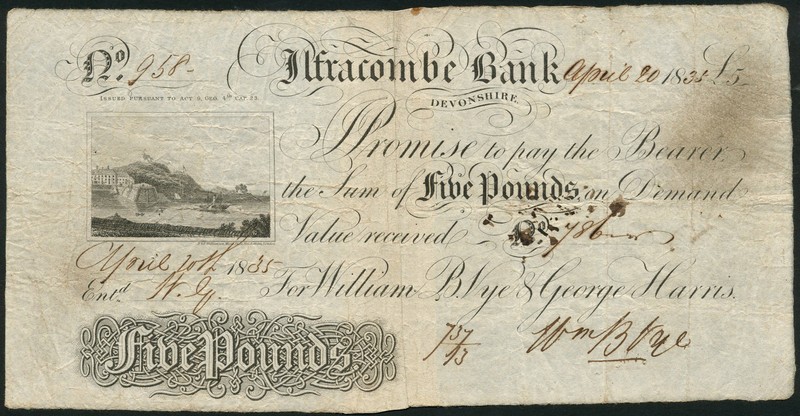 No. 958 - Ilfracombe Bank April 20 1835 £5
ISSUED PURSUANT TO ACT 9, GEO. 4th CAP. 23.
DEVONSHIRE.
I Promise to pay the Bearer
the Sum of Five Pounds on Demand
Value received
April 20th 1835
Entd. For William B. Vye & George Harris.
Five Pounds.
737
Wm B Vye